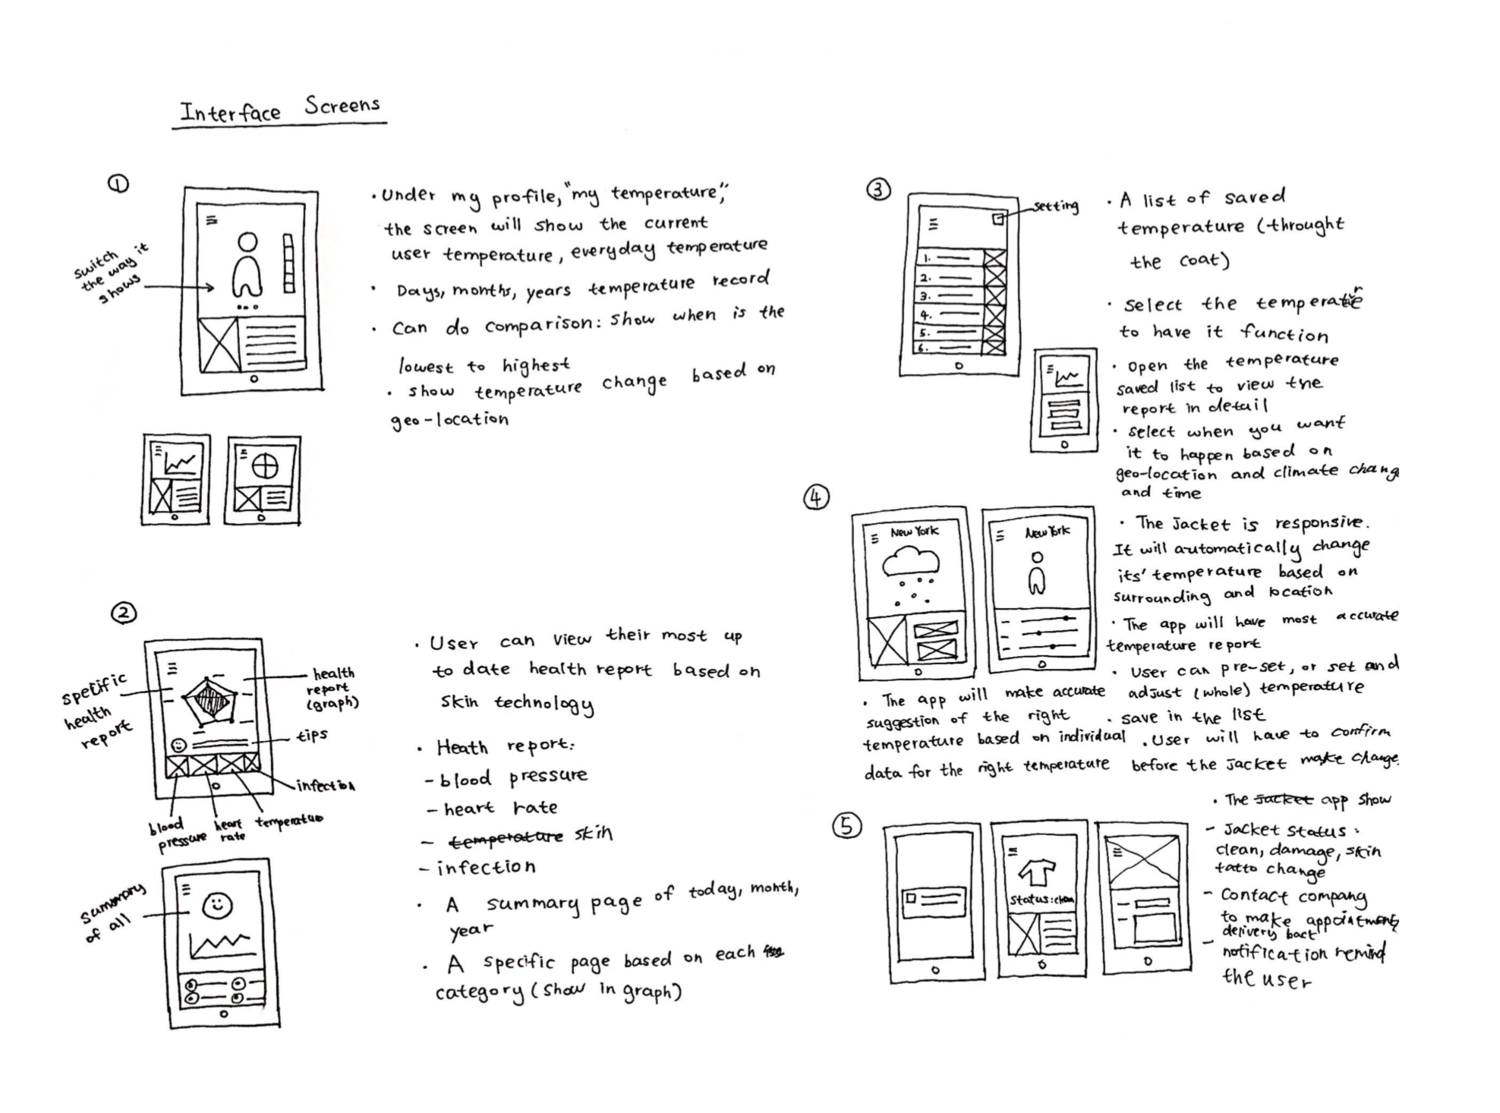 Interface Screens
1
switch
the way it
shows
• Under my profile, "my temperature",
the screen will show the current
user temperature, everyday temperature
• Days, months, years temperature record
• Can do comparison: show when is the
lowest to highest
• show temperature change based on
geo-location
2
specific
health
report
health
report
(graph)
tips
infection
blood
pressure
heart
rate
temperature
summary
of all
• User can view their most up
to date health report based on
skin technology
• Heath report:
- blood pressure
- heart rate
- temperature skin
- infection
• A summary page of today, month,
year
• A specific page based on each
category (show in graph)
3
setting
1.
2.
3.
4.
5.
6.
• A list of saved
temperature (throught
the coat)
• select the temperature
to have it function
• Open the temperature
saved list to view the
report in detail
• select when you want
it to happen based on
geo-location and climate chang
and time
4
New York
New York
• The Jacket is responsive.
It will automatically change
its' temperature based on
surrounding and location
• The app will have most accurate
temperature report
• User can pre-set, or set and
adjust (whole) temperature
• save in the list
• User will have to confirm
before the Jacket make change
• The app will make accurate
suggestion of the right
temperature based on individual
data for the right temperature
5
Status: clean
• The Jacket app show
- Jacket status:
clean, damage, skin
tatto change
- Contact company
to make appointment,
delivery back
- notification remind
the user